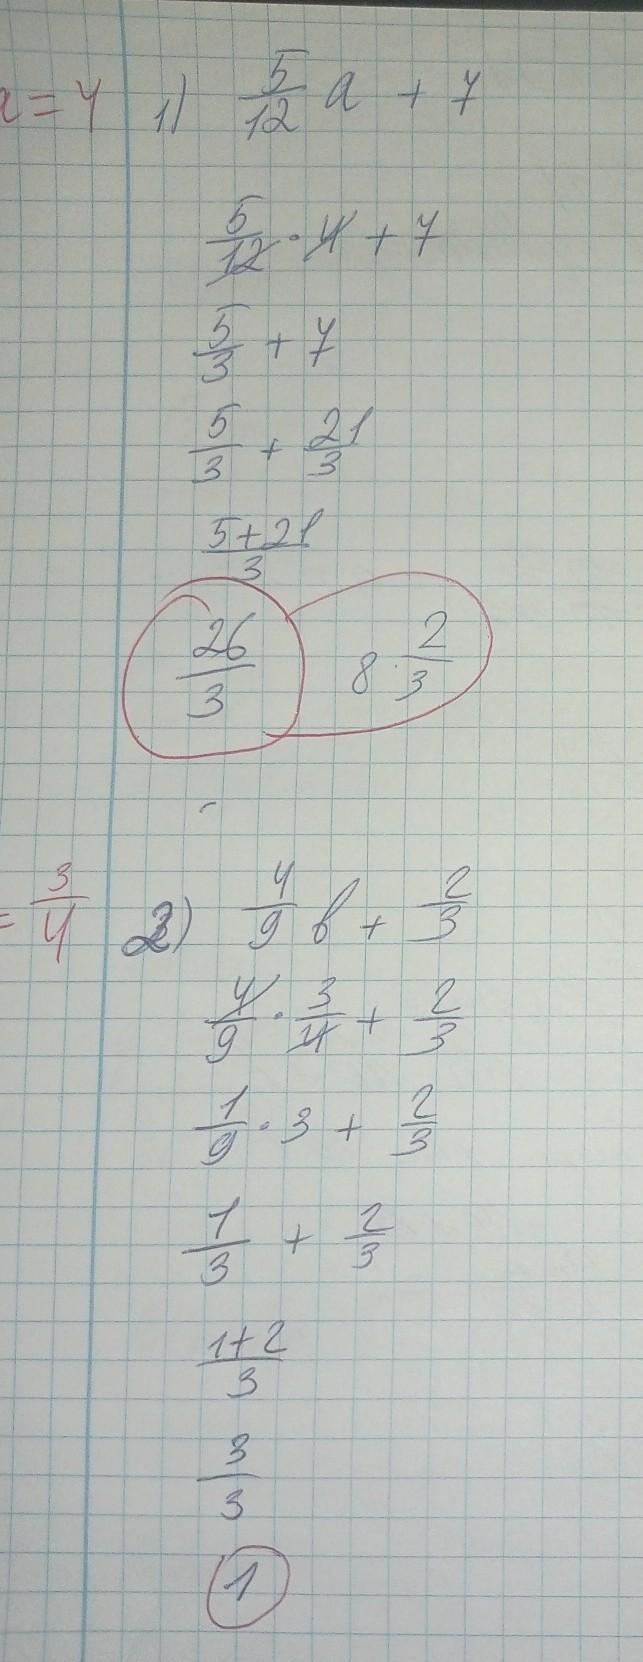 a = 4 1) 5/12 a + 7
5/12 · 4 + 7
5/3 + 7
5/3 + 21/3
5+21/3
26/3 8 2/3
= 3/4 2) 4/9 b + 2/3
4/9 · 3/4 + 2/3
1/9 · 3 + 2/3
1/3 + 2/3
1+2/3
3/3
1